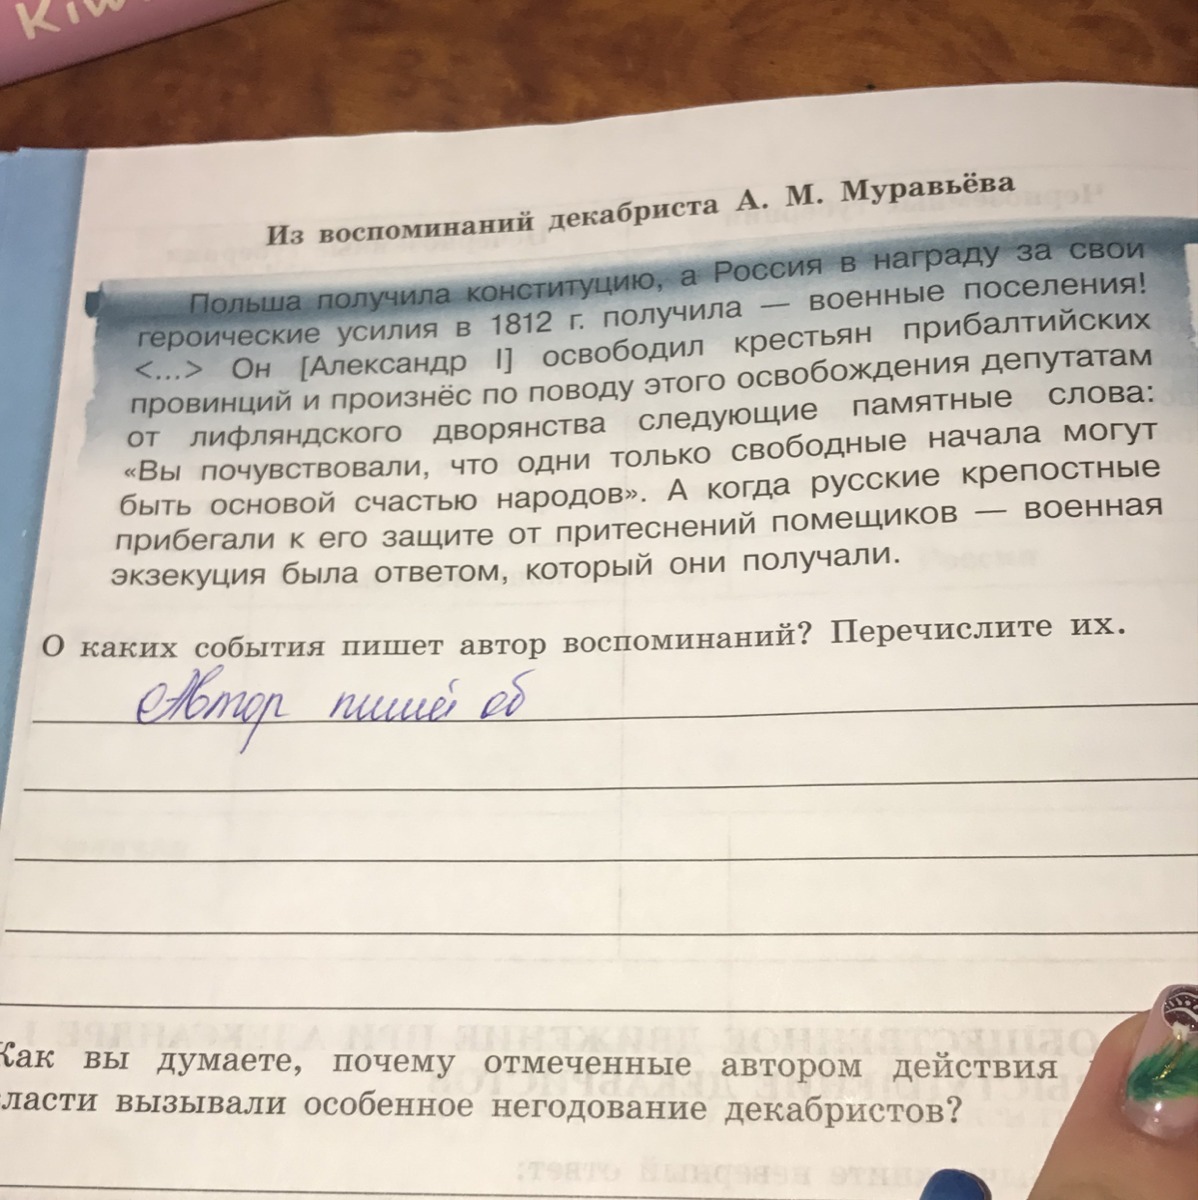 Из воспоминаний декабриста А. М. Муравьёва
Польша получила конституцию, а Россия в награду за свои
героические усилия в 1812 г. получила — военные поселения!
<...> Он [Александр I] освободил крестьян прибалтийских
провинций и произнёс по поводу этого освобождения депутатам
от лифляндского дворянства следующие памятные слова:
«Вы почувствовали, что одни только свободные начала могут
быть основой счастью народов». А когда русские крепостные
прибегали к его защите от притеснений помещиков — военная
экзекуция была ответом, который они получали.
О каких события пишет автор воспоминаний? Перечислите их.
Автор пишет об
Как вы думаете, почему отмеченные автором действия
власти вызывали особенное негодование декабристов?